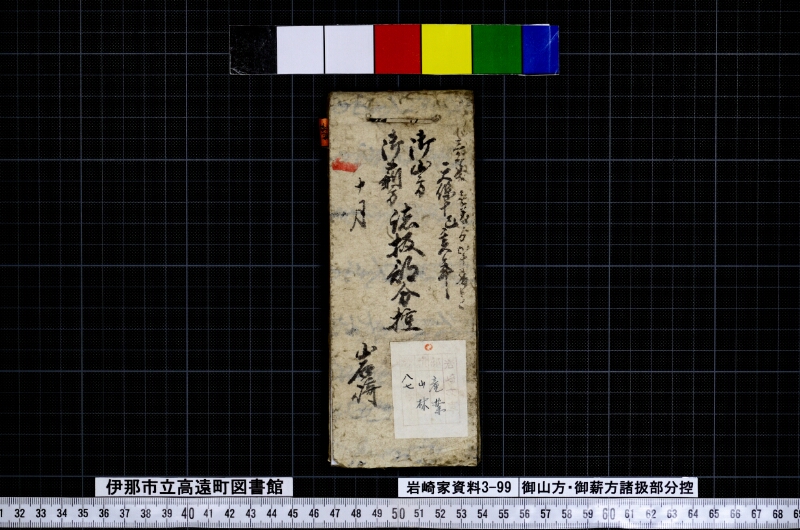 天保十己亥年
御山方
御薪方
諸扱部分控
十月
岩崎
産業
山林
八七
伊那市立高遠町図書館
岩崎家資料3-99
御山方・御薪方諸扱部分控
32 33 34 35 36 37 38 39 40 41 42 43 44 45 46 47 48 49 50 51 52 53 54 55 56 57 58 59 60 61 62 63 64 65 66 67 68